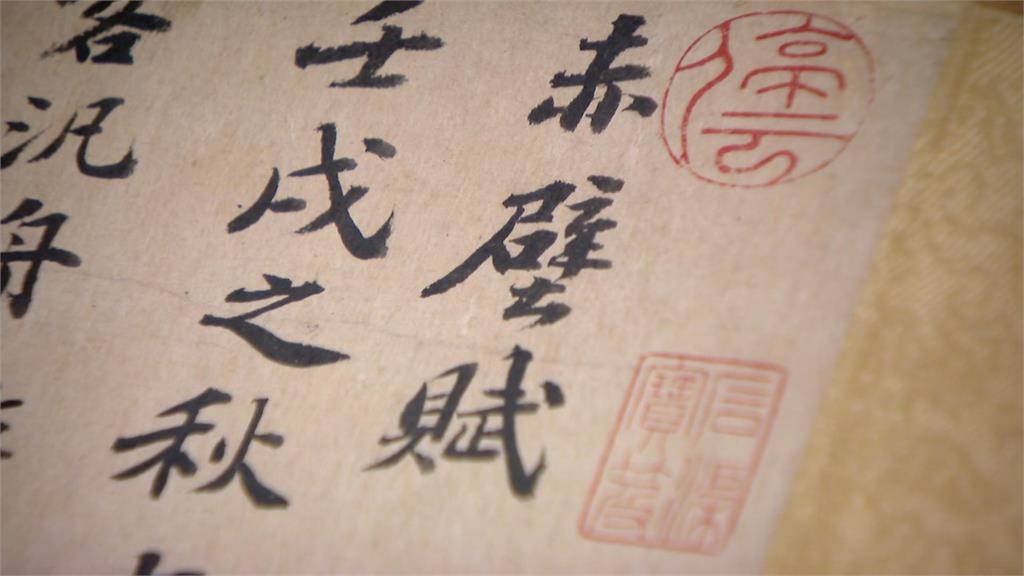 停云
赤壁賦
壬戌之秋
客汎舟